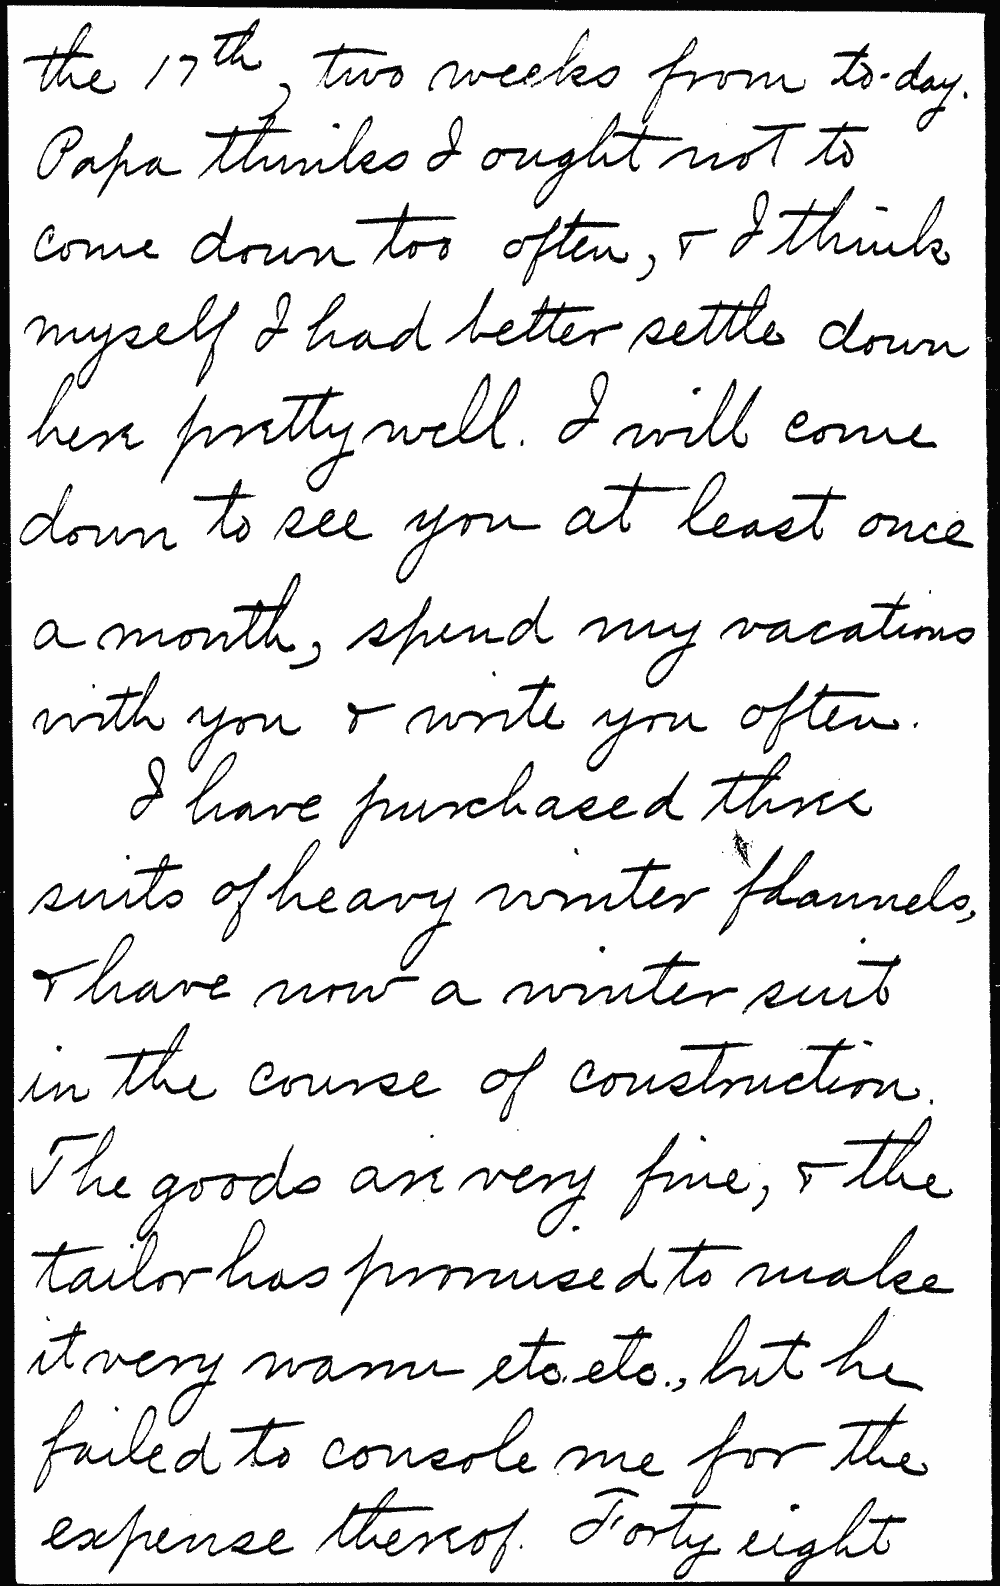 the 17th, two weeks from to-day.
Papa thinks I ought not to
come down too often, & I think
myself I had better settle down
here pretty well. I will come
down to see you at least once
a month, spend my vacations
with you & write you often.
I have purchased three
suits of heavy winter flannels,
& have now a winter suit
in the course of construction.
The goods are very fine, & the
tailor has promised to make
it very warm etc. etc., but he
failed to console me for the
expense thereof. Forty eight